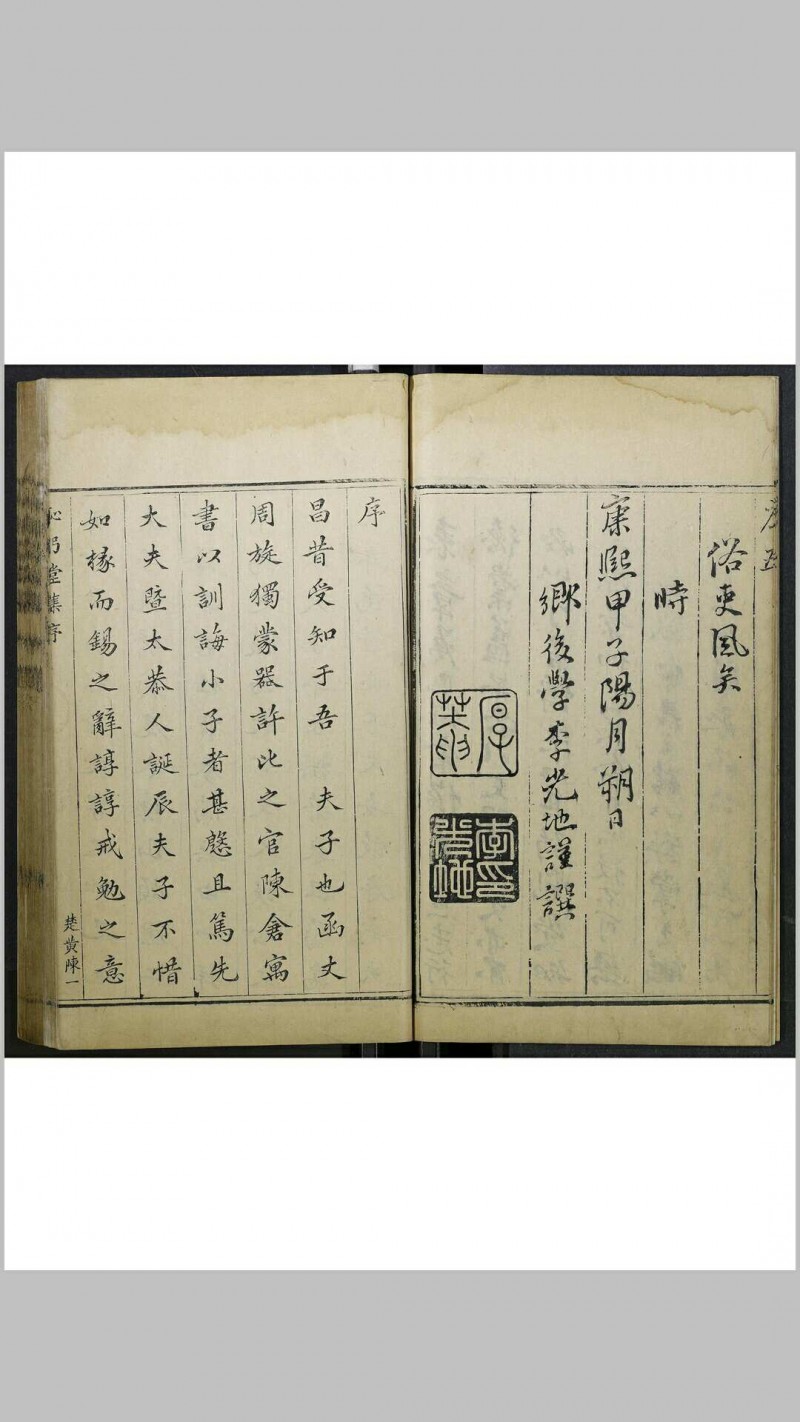 序五
俗吏風矣
時
康熙甲子陽月朔日
鄉後學李光地謹譔
厚菴
李光地印
序
昌昔受知于吾　夫子也函丈
周旋獨蒙器許比之官陳倉寓
書以訓誨小子者甚慇且篤先
大夫暨太恭人誕辰夫子不惜
如椽而錫之辭諄諄戒勉之意
堂集序
楚黄陳一